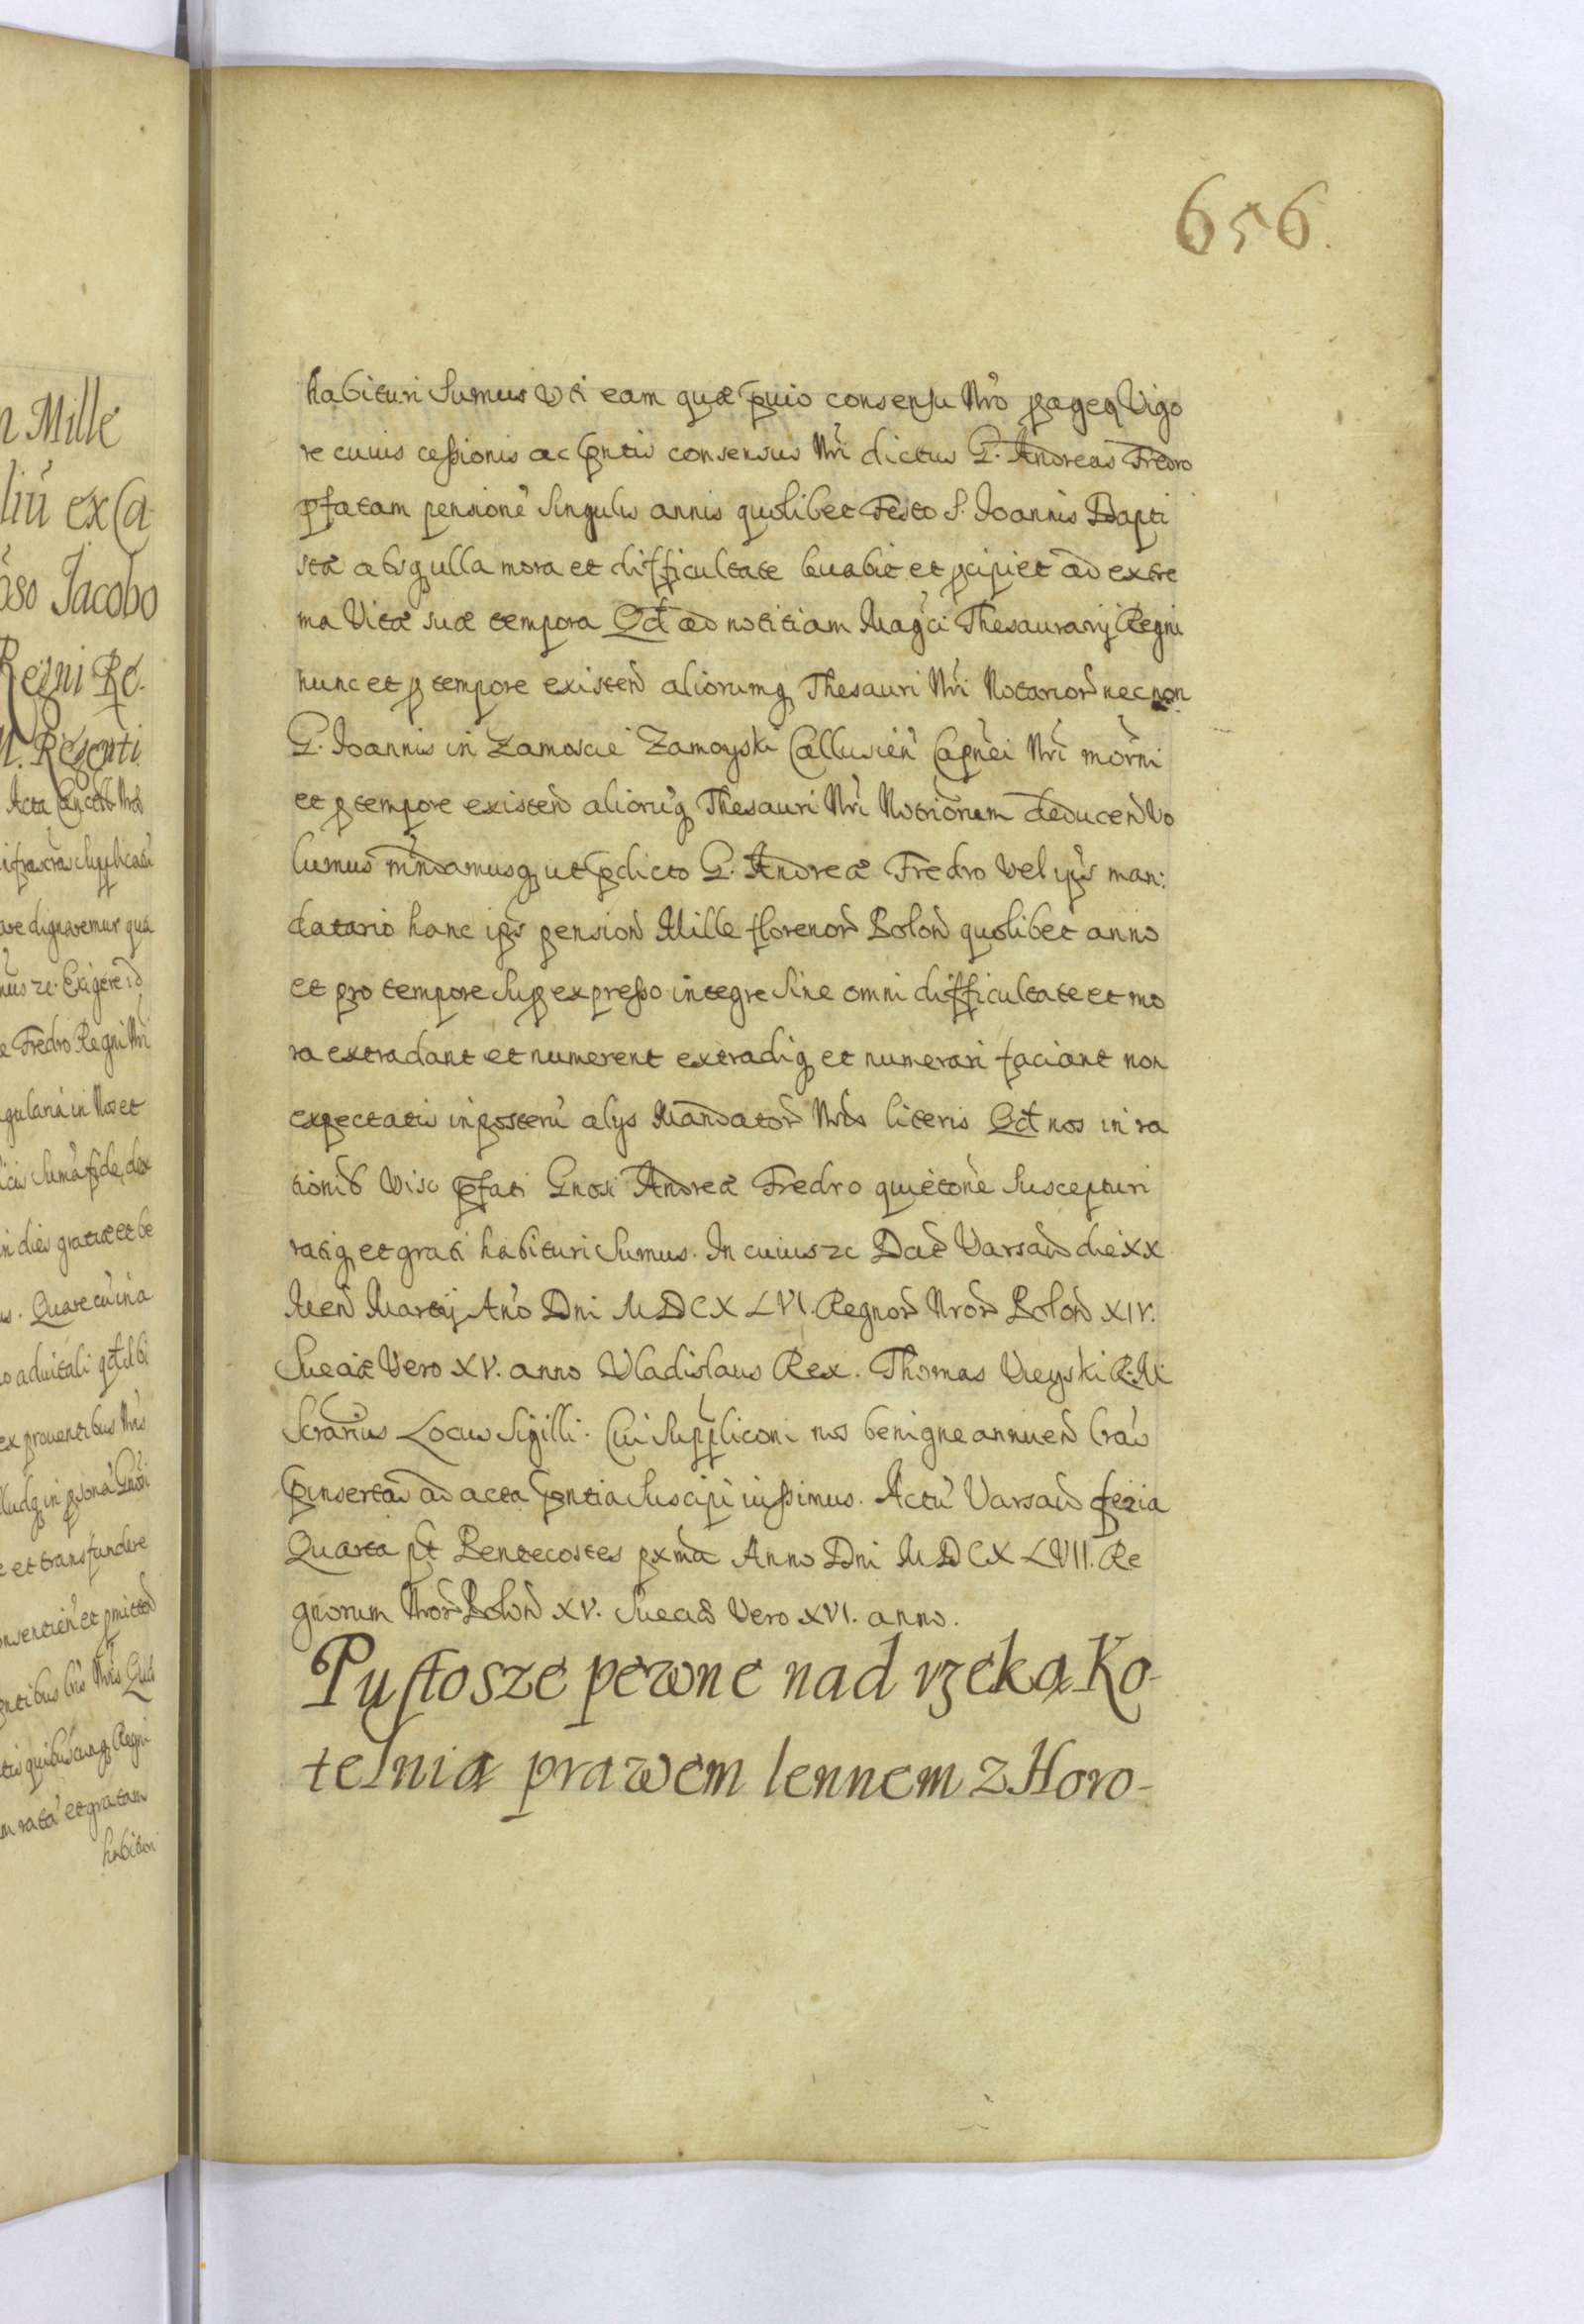 656.
habituri Sumus Uti eam quæ pvio consensu Nro pageq Vigo
re cuius cessionis ac pntis consensus Nri dictus G. Andreas Fredro
pfatam pensionē singulis annis quolibet Festo S. Joannis Bapti
stæ absq ulla mora et difficultate leuabit et pcipiet ad extre
ma Vitæ suæ tempora Qd ad notitiam Magci Thesaurarij Regni
nunc et p tempore existen aliorumq Thesauri Nri Notarior necnon
G. Joannis in Zamoscie Zamoyski Callusien Capnei Nri morni
et p tempore existen aliorūq Thesauri Nri Notrionum deducen Vo
lumus mndamusq ut pdicto G. Andreæ Fredro vel ips man:
datario hanc ips pension Mille florenor Polon quolibet anno
et pro tempore sup expresso integre sine omni difficultate et mo
ra extradant et numerent extradiq et numerari faciant non
expectatis inposterū alys Mandator Nris literis Qd nos in ra
tionib Visc pfati Gnosi Andreæ Fredro quietone suscepturi
ratiq et grati habituri sumus. In cuius zc Dat Varsav die XX
Men Martij Ano Dni MDCXLVI. Regnor Nror Polon XIV.
Sueciæ Vero XV. anno Vladislaus Rex. Thomas Uieyski R. M.
Scrarius Locus Sigilli. Cui suppliconi nos benigne annuen lras
pinsertas ad acta pntia suscipi iussimus. Actū Varsav feria
Quarta pt Pentecostes pxma Anno Dni MDCXLVII. Re
gnorum Nror Polon XV. Sueciæ Vero XVI. anno.
Pustosze pewne nad rzeką Ko-
telnią prawem lennem z Horo-
n Mille
liū ex Ca
oso Jacobo
Regni Re-
Acta Cancell Nræ
are dignaremur qua
e Fredro Regni Nri
gularia in Nos et
ri dies gratiæ et be
us. Quare cū in a
ex prouentibus Nris
e et transfundere
tis quibuscunq Regni
m ratā et gratam
habituri